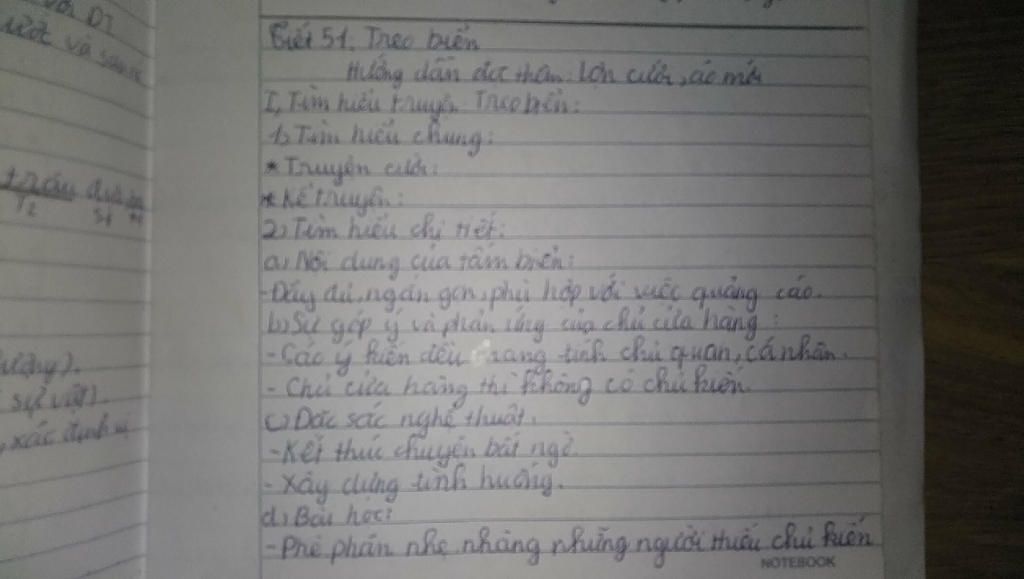 Tiết 51: Treo biển
Hướng dẫn đọc thêm: lợn cưới, áo mới
I, Tìm hiểu truyện Treo biển:
1) Tìm hiểu chung:
* Truyện cười:
* Kể truyện:
2) Tìm hiểu chi tiết:
a) Nội dung của tấm biển:
-Đầy đủ, ngắn gọn, phù hợp với việc quảng cáo.
b) Sự góp ý và phản ứng của chủ cửa hàng:
- Các ý kiến đều mang tính chủ quan, cá nhân.
- Chủ cửa hàng thì không có chủ kiến.
c) Đặc sắc nghệ thuật.
-Kết thúc chuyện bất ngờ.
- Xây dựng tình huống.
d) Bài học:
-Phê phán nhẹ nhàng những người thiếu chủ kiến
NOTEBOOK
sự vật).
, xác định